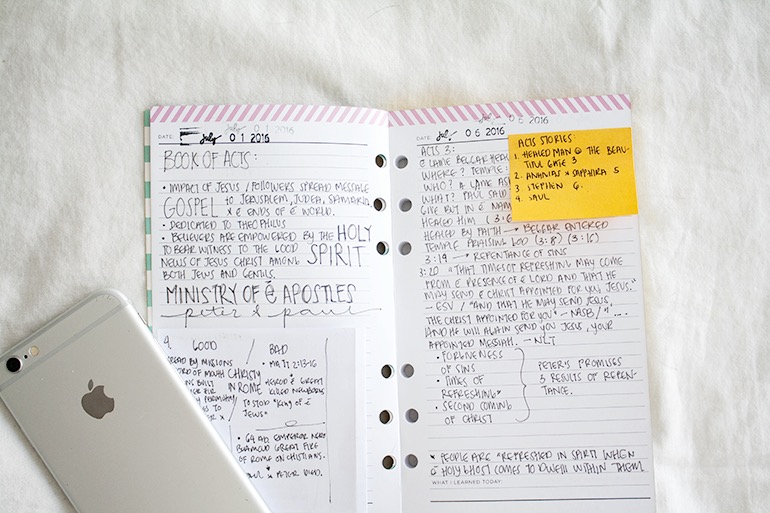 DATE: July 01 2016
BOOK OF ACTS:
• IMPACT OF JESUS / FOLLOWERS SPREAD MESSAGE
GOSPEL to JERUSALEM, JUDEA, SAMARIA,
& ENDS OF WORLD.
• DEDICATED TO THEOPHILUS
• BELIEVERS ARE EMPOWERED BY THE HOLY
TO BEAR WITNESS TO THE GOOD SPIRIT
NEWS OF JESUS CHRIST AMONG
BOTH JEWS AND
MINISTRY OF APOSTLES
peter & paul
GOOD
BY MISSIONS
OF MOUTH CHRISTY
IN ROME
BAD
• 2:13-16
HEROD GREAT
KILLED NEWBORNS
TO STOP "KING OF
JEWS"
• 64 AD. EMPEROR NERO
BLAMED GREAT FIRE
OF ROME ON CHRISTIANS.
& PETER DIED.
DATE: July 06 2016
ACTS 3:
LAME BEGGAR
WHERE? TEMPLE
WHO? A LAME
WHAT? PAUL SAID
GIVE BUT IN
HEALED HIM
HEALED BY FAITH → BEGGAR ENTERED
TEMPLE PRAISING GOD (3:8) (3:16)
3:19 → REPENTANCE OF SINS
3:20 "THAT TIMES OF REFRESHING MAY COME
FROM PRESENCE OF LORD AND THAT HE
MAY SEND CHRIST APPOINTED FOR YOU, JESUS."
- ESV / "AND THAT HE MAY SEND JESUS,
THE CHRIST APPOINTED FOR YOU" - NASB / "...
AND HE WILL AGAIN SEND YOU JESUS, YOUR
APPOINTED MESSIAH. - NLT
• FORGIVENESS
OF SINS
• TIMES OF
REFRESHING*
• SECOND COMING
OF CHRIST
PETER'S PROMISES
3 RESULTS OF REPEN-
TANCE.
* PEOPLE ARE "REFRESHED IN SPIRIT WHEN
HOLY GHOST COMES TO DWELL WITHIN THEM
WHAT I LEARNED TODAY:
ACTS STORIES:
1. HEALED MAN @ THE BEAU-
TIFUL GATE 3
2. ANANIAS & SAPPHIRA 5
3. STEPHEN 6.
4. SAUL